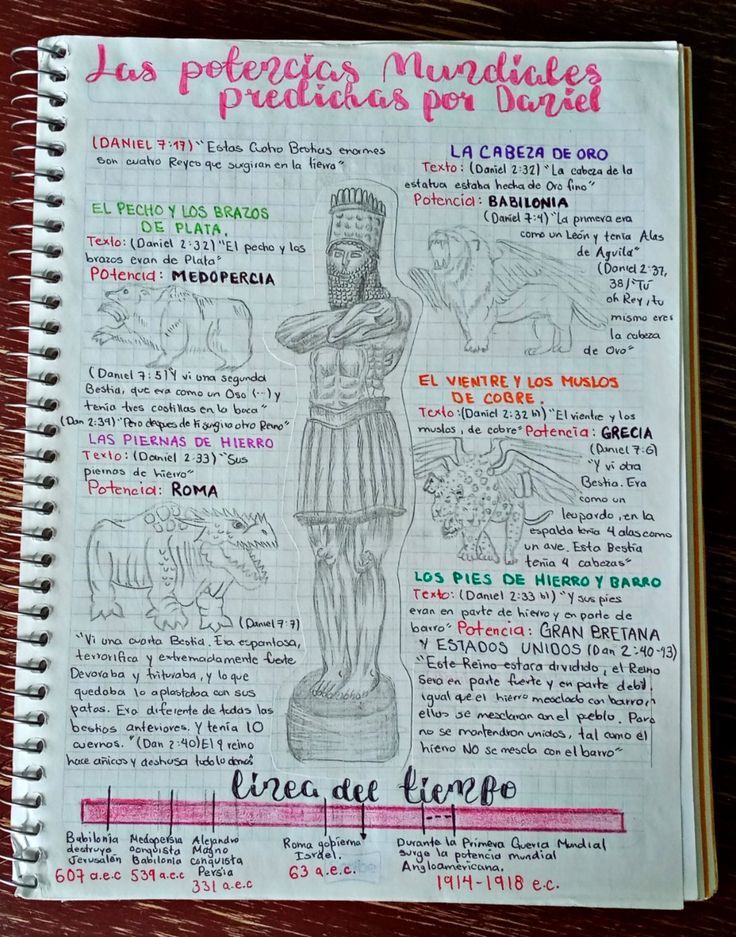 Las potencias Mundiales
predichas por Daniel
(DANIEL 7:17) "Estas Cuatro Bestias enormes
son cuatro Reyes que surgiran en la tierra"
LA CABEZA DE ORO
Texto: (Daniel 2:32) "La cabeza de la
estatua estaba hecha de Oro fino"
Potencia: BABILONIA
(Daniel 7:4) "La primera era
como un León y tenía Alas
de Aguila"
(Daniel 2:37,
38/ "Tú
oh Rey, tu
mismo eres
la cabeza
de Oro"
EL PECHO Y LOS BRAZOS
DE PLATA.
Texto: (Daniel 2:32) "El pecho y los
brazos eran de Plata"
Potencia: MEDOPERCIA
(Daniel 7:5) Y vi una segunda
Bestia, que era como un Oso (...) y
tenía tres costillas en la boca"
(Dan 2:39) "Pero despues de ti surgira otro Reino"
EL VIENTRE Y LOS MUSLOS
DE COBRE.
Texto: (Daniel 2:32 b) "El vientre y los
muslos, de cobre" Potencia: GRECIA
(Daniel 7:6)
"Y vi otra
Bestia. Era
como un
leopardo, en la
espalda tenía 4 alas como
un ave. Esta Bestia
tenía 4 cabezas"
LAS PIERNAS DE HIERRO
Texto: (Daniel 2:33) "Sus
piernas de hierro"
Potencia: ROMA
(Daniel 7:7)
"Vi una cuarta Bestia. Era espantosa,
terrorifica y extremadamente fuerte
Devoraba y trituraba, y lo que
quedaba lo aplastaba con sus
patas. Era diferente de todas las
bestias anteriores. Y tenía 10
cuernos." (Dan 2:40) El 4 reino
hace añicos y deshusa todo lo demás
LOS PIES DE HIERRO Y BARRO
Texto: (Daniel 2:33 b) "Y sus pies
eran en parte de hierro y en parte de
barro" Potencia: GRAN BRETANA
Y ESTADOS UNIDOS (Dan 2:40-43)
"Este Reino estara dividido, el Reino
Sera en parte fuerte y en parte debil.
igual que el hierro mesclado con barro,
ellos se mesclaran con el pueblo. Pero
no se mantendran unidos, tal como el
hierro NO se mescla con el barro"
linea del tiempo
Babilonia
destruye
Jerusalén
607 a.e.c
Medopersia
conquista
Babilonia
539 a.e.c
Alejandro
Magno
conquista
Persia
331 a.e.c
Roma gobierna
Israel.
63 a.e.c.
Durante la Primera Guerra Mundial
surge la potencia mundial
Angloamericana.
1914-1918 e.c.